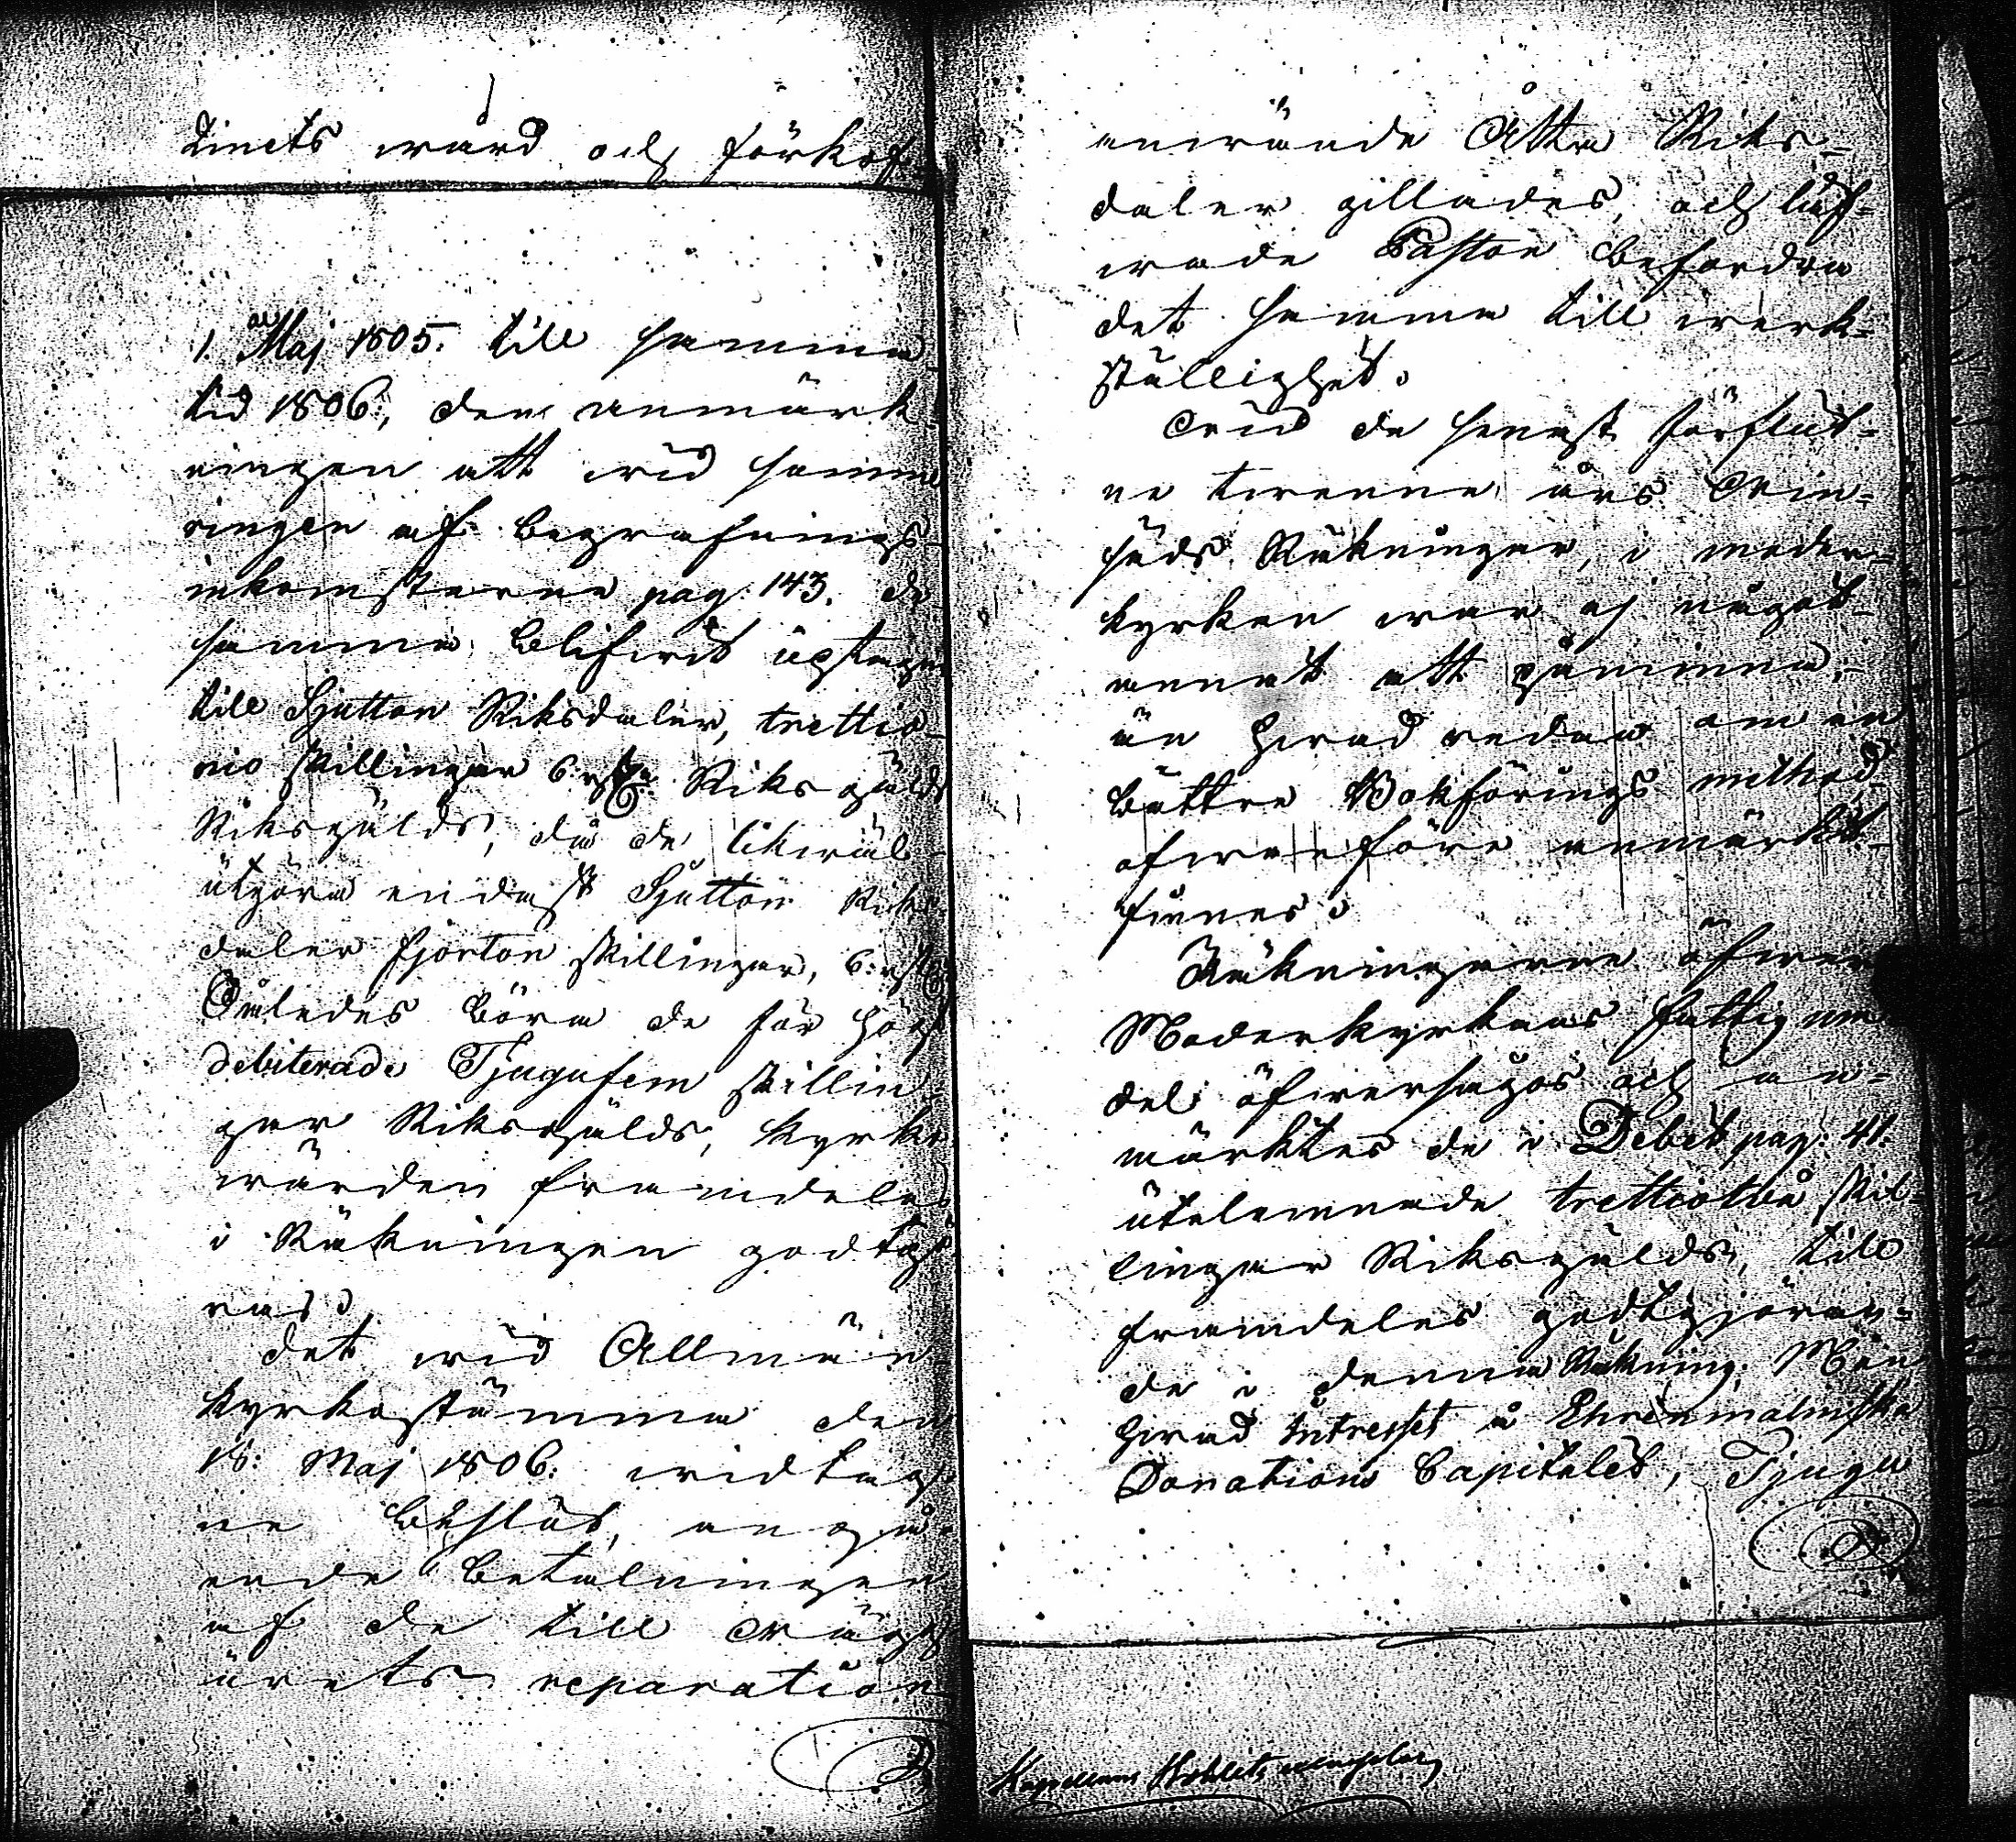 tinets wård och förkof-
1. Maj 1805. till samma
tid 1806, den anmärk-
ningen att wid summe
ringen af begrafnings-
inkomsterne pag: 143. de
samma blifwit uptagne
till Sjutton Riksdaler, trettio-
nio skillingar 6 rst. Riksgälds
Riksgälds, då de likwäl
utgöra endast Sjutton Riks-
daler fjorton skillingar, 6: rst:
Således böra de för högt
debiterade Tjugufem skillin-
gar Riksgälds, kyrko-
wärden framdeles
i Räkningen godtgö-
ras.
Det wid Allmän
kyrkostämma den
18: Maj 1806. widtag-
ne beslut, angå-
ende betalningen
af de till
urets reparation
anwände Åtta Riks-
daler gillades, och luf-
wade Pastor befordra
det samma till werk-
ställighet.
Wid de senast förflut-
ne twenne års Win-
säds Räkningar, i moder-
kyrkan war ej något
annat att påminna,
än hwad redan om en
bättre Bokförings method
ofwanföre anmärkt
finnes.
Räkningarne öfwer
Moderkyrkans fattig me-
del öfwersågos och an-
märktes de i Debet pag: 41.
utelemnade trettiotwå skil-
lingar Riksgälds, till
framdeles godtgjöran-
de i denna Räkning. Men
hwad Intresset å Ehrenmalmska
Donations Capitalet, Tjugu